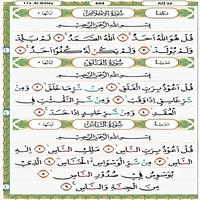 112. Al-Ikhlas 604 Juz 30
سُورَةُ الإِخْلَاصِ
بِسْمِ اللَّهِ الرَّحْمَٰنِ الرَّحِيمِ
قُلْ هُوَ اللَّهُ أَحَدٌ اللَّهُ الصَّمَدُ لَمْ يَلِدْ
وَلَمْ يُولَدْ وَلَمْ يَكُن لَّهُ كُفُوًا أَحَدٌ
سُورَةُ الْفَلَقِ
بِسْمِ اللَّهِ الرَّحْمَٰنِ الرَّحِيمِ
قُلْ أَعُوذُ بِرَبِّ الْفَلَقِ مِن شَرِّ مَا خَلَقَ وَمِن
شَرِّ غَاسِقٍ إِذَا وَقَبَ وَمِن شَرِّ النَّفَّاثَاتِ
فِي الْعُقَدِ وَمِن شَرِّ حَاسِدٍ إِذَا حَسَدَ
سُورَةُ النَّاسِ
بِسْمِ اللَّهِ الرَّحْمَٰنِ الرَّحِيمِ
قُلْ أَعُوذُ بِرَبِّ النَّاسِ مَلِكِ النَّاسِ إِلَٰهِ
النَّاسِ مِن شَرِّ الْوَسْوَاسِ الْخَنَّاسِ الَّذِي
يُوَسْوِسُ فِي صُدُورِ النَّاسِ
مِنَ الْجِنَّةِ وَالنَّاسِ